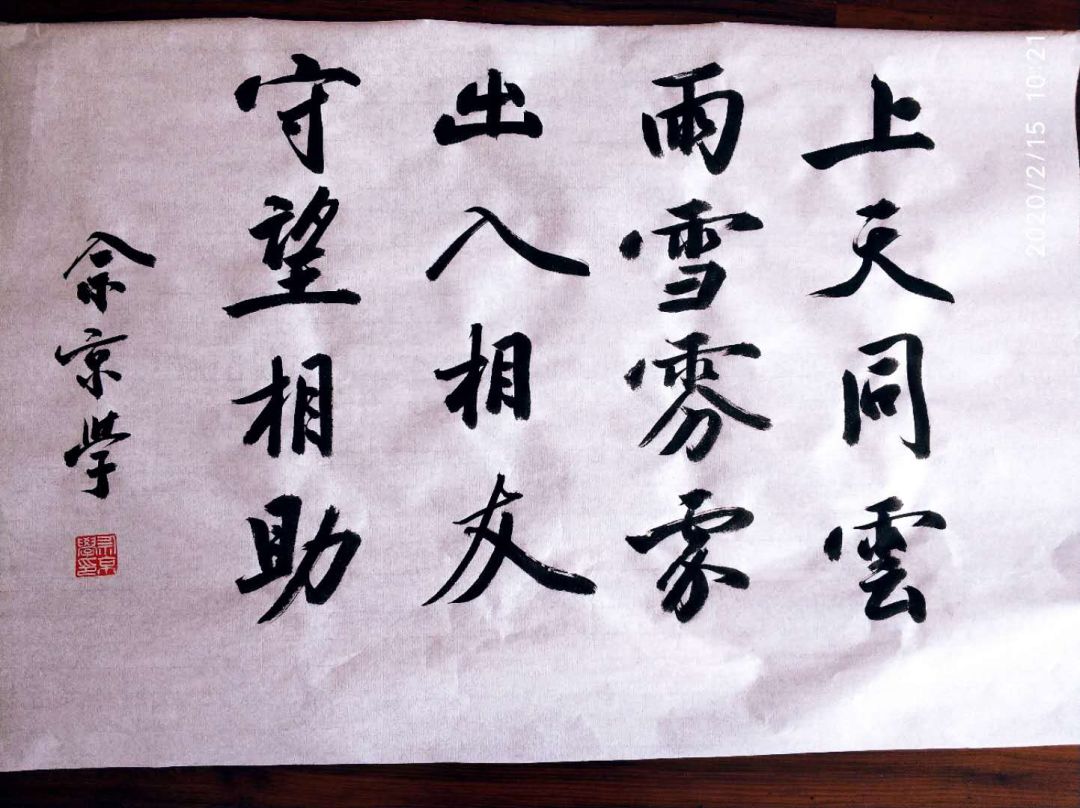 上天同雲
雨雪雰雰
出入相友
守望相助
佘京學
2020/2/15 10:21